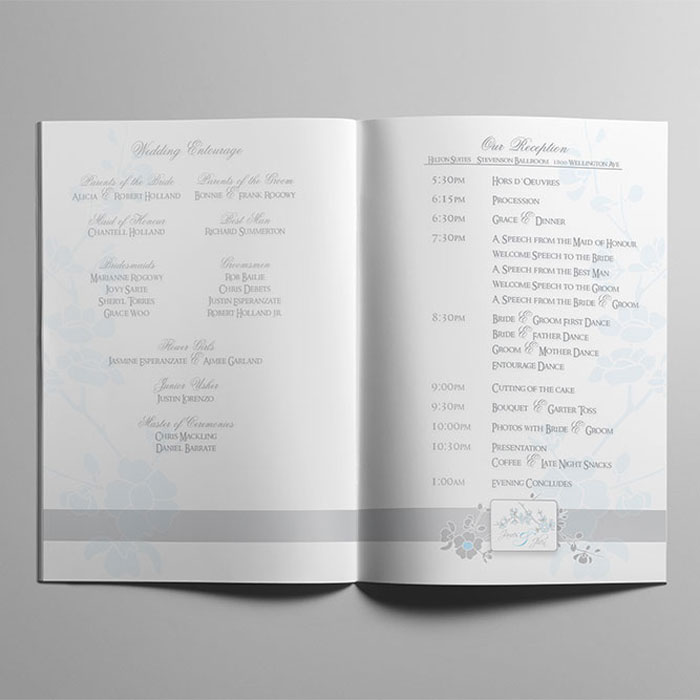 Wedding Entourage
Parents of the Bride
Alicia & Robert Holland
Parents of the Groom
Bonnie & Frank Rogowy
Maid of Honour
Chantell Holland
Best Man
Richard Summerton
Bridesmaids
Marianne Rogowy
Jovy Sarte
Sheryl Torres
Grace Woo
Groomsmen
Rob Bailie
Chris Debits
Justin Esperanzate
Robert Holland Jr
Flower Girls
Jasmine Esperanzate & Aimee Garland
Junior Usher
Justin Lorenzo
Master of Ceremonies
Chris Mackling
Daniel Barrate
Our Reception
Hilton Suites Stevenson Ballroom 1800 Wellington Ave
5:30pm Hors d'Oeuvres
6:15pm Procession
6:30pm Grace & Dinner
7:30pm A Speech from the Maid of Honour
Welcome Speech to the Bride
A Speech from the Best Man
Welcome Speech to the Groom
A Speech from the Bride & Groom
8:30pm Bride & Groom First Dance
Bride & Father Dance
Groom & Mother Dance
Entourage Dance
9:00pm Cutting of the cake
9:30pm Bouquet & Garter Toss
10:00pm Photos with Bride & Groom
10:30pm Presentation
Coffee & Late Night Snacks
1:00am Evening Concludes